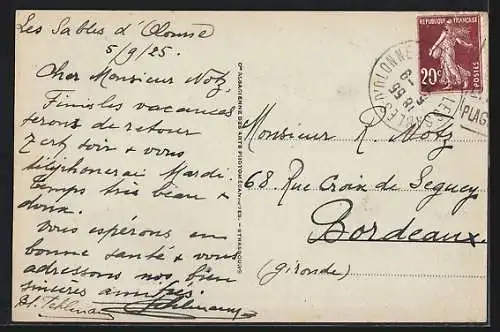 Les Sables d'Olonne
5/9/25.
Cher Monsieur Notz,
Finis les vacances
serons de retour
soir & vous
téléphonerai Mardi.
Temps très beau &
doux.
Vous espérons en
bonne santé & vous
adressons nos bien
sincères amitiés.
Cie ALSACIENNE DES ARTS PHOTOMÉCANIQUES - STRASBOURG
RÉPUBLIQUE FRANÇAISE
20c
POSTES
PLAG
Monsieur R. Notz
68 Rue Croix de Seguey
Bordeaux.
(Gironde)